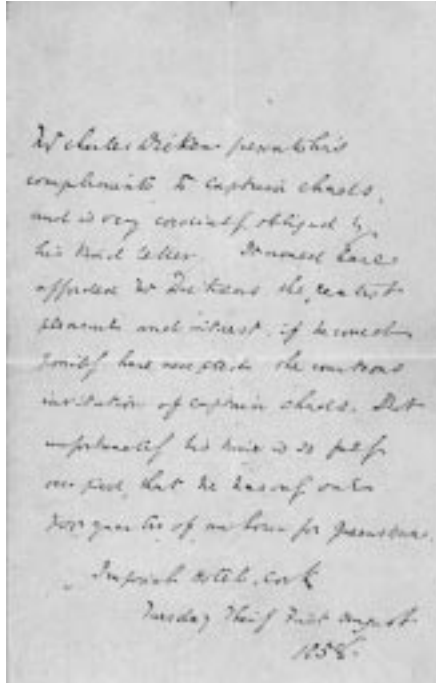 Mr Charles Dickens presents his
compliments to Captain
and is very cordially obliged by
his kind letter. It would have
afforded Mr Dickens the greatest
pleasure and interest, if he could
possibly have accepted the courteous
invitation of Captain But
unfortunately his time is so fully
occupied, that he has only
quarters of an hour for
Imperial Hotel, Cork
Tuesday Thirty First August
1858.